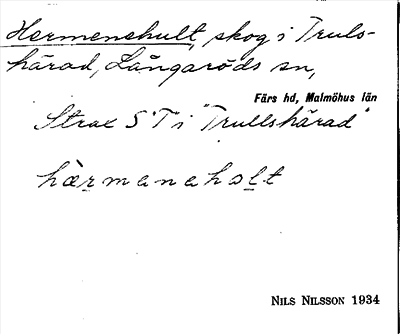 Hermenshult, skog i Truls-
härad, Långaröds sn,
Färs hd, Malmöhus län
Strax S "T" i "Trullshärad"
hærmenaholt
NILS NILSSON 1934